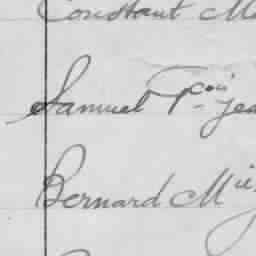 Constant M
Samuel Fçois Jea
Bernard Mie